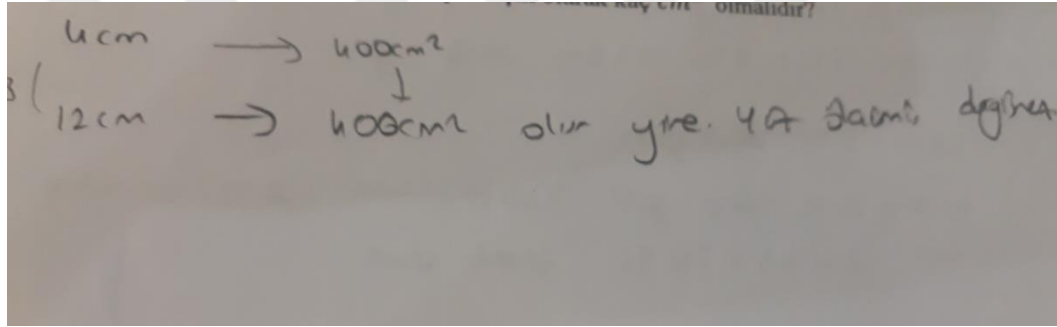 olarak kaç cm olmalıdır?
4cm → 400cm²
↓
3( 12cm → 400cm² olur yine. YA hacmi değişmez